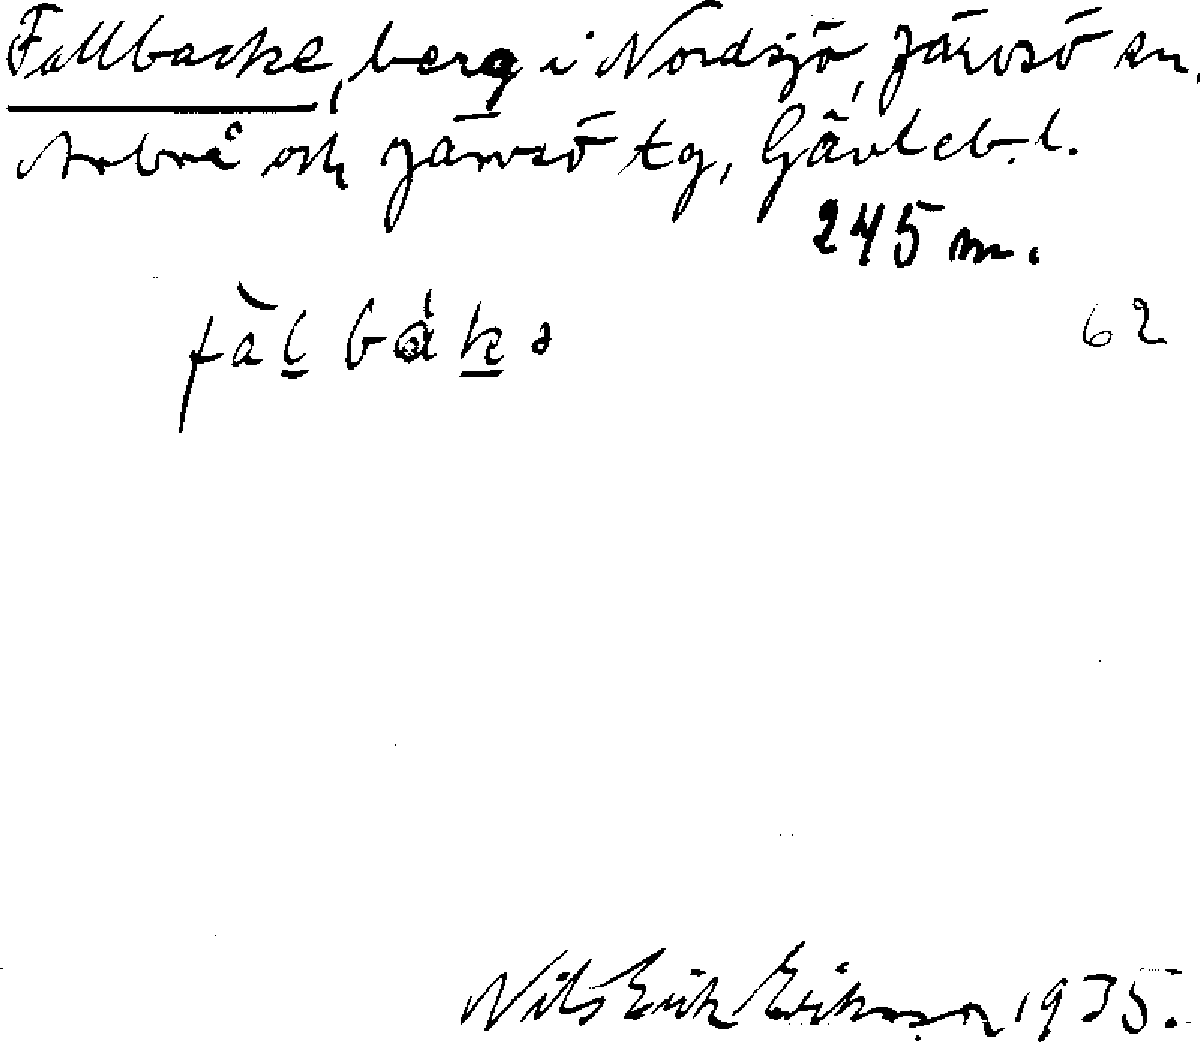 Fallbacke, berg i Nordsjö, Järvsö sn,
Arbrå och Järvsö tg, Gävleb. l.
245 m.
fàl bák ə
62
Nils Erik Eriksson 1935.